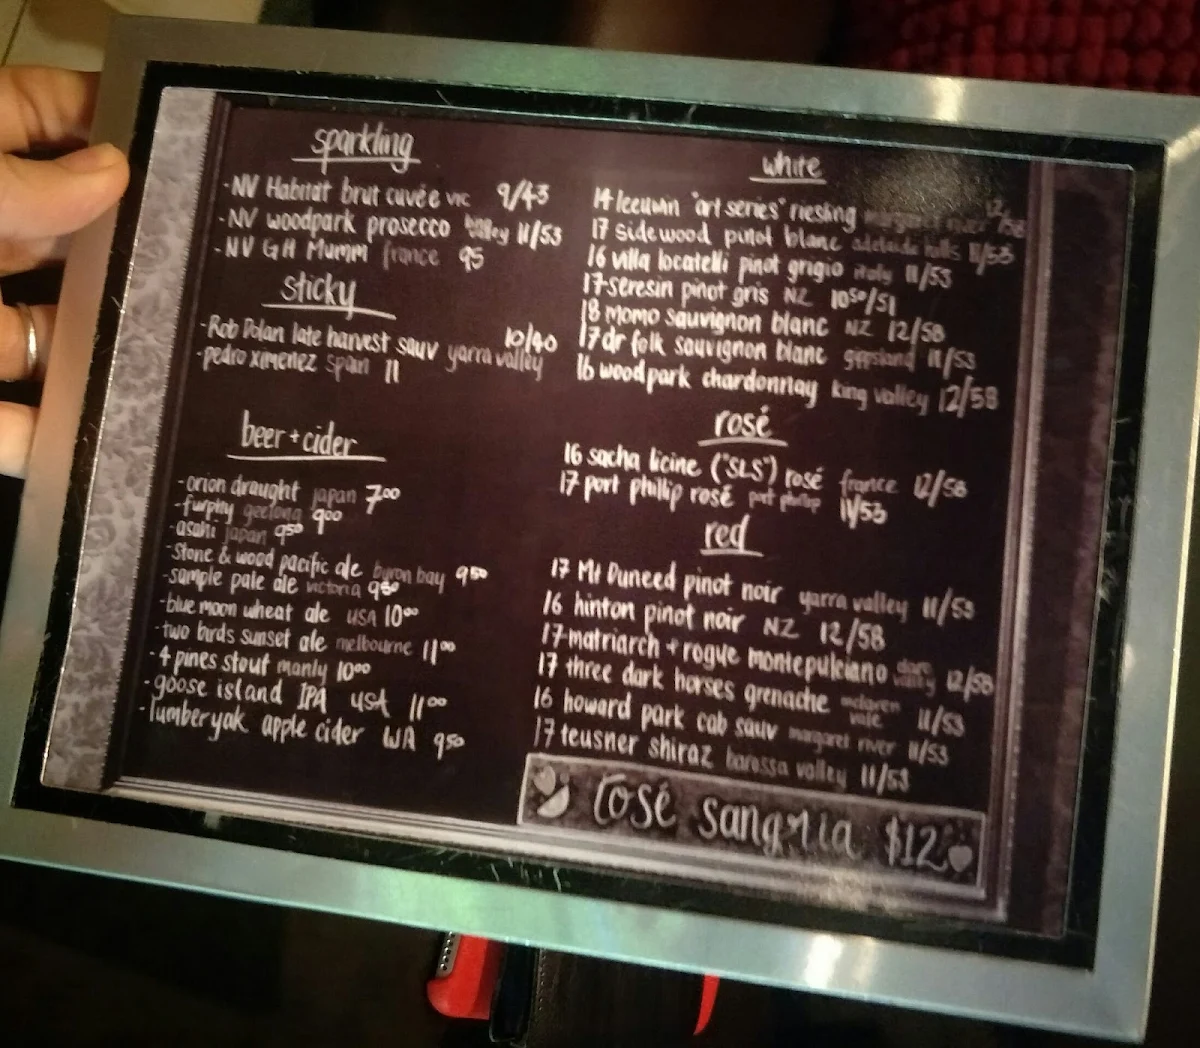 sparkling
-NV Habitat brut cuvée vic 9/43
-NV woodpark prosecco valley 11/53
-NV GH Mumm france 95
sticky
-Rob Dolan late harvest sauv yarra valley 10/40
-pedro ximenez spain 11
beer + cider
-orion draught japan 7⁰⁰
-furphy geelong 9⁰⁰
-asahi japan 9⁵⁰
-stone & wood pacific ale byron bay 9⁵⁰
-sample pale ale victoria 9⁵⁰
-blue moon wheat ale USA 10⁰⁰
-two birds sunset ale melbourne 11⁰⁰
-4 pines stout manly 10⁰⁰
-goose island IPA USA 11⁰⁰
-lumberyak apple cider WA 9⁵⁰
white
14 leeuwin "art series" riesling margaret river 12/58
17 sidewood pinot blanc adelaide hills 11/53
16 villa locatelli pinot grigio italy 11/53
17 seresin pinot gris NZ 10⁵⁰/51
18 momo sauvignon blanc NZ 12/58
17 dr folk sauvignon blanc gippsland 11/53
16 woodpark chardonnay king valley 12/58
rosé
16 sacha licine ("SLS") rosé france 12/58
17 port phillip rosé port phillip 11/53
red
17 Mt Duneed pinot noir yarra valley 11/53
16 hinton pinot noir NZ 12/58
17 matriarch + rogue montepulciano clare valley 12/58
17 three dark horses grenache mclaren vale 11/53
16 howard park cab sauv margaret river 11/53
17 teusner shiraz barossa valley 11/53
rosé sangria $12